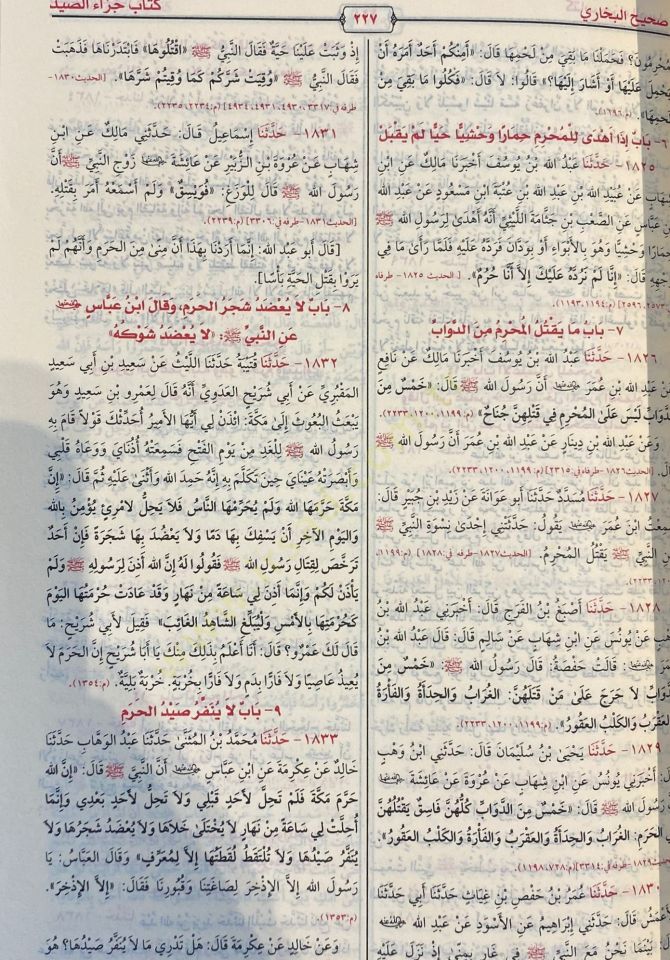 صحيح البخاري
٢٢٧
كتاب جزاء الصيد
مُحْرِمُونَ؟ فَحَمَلْنَا مَا بَقِيَ مِنْ لَحْمِهَا قَالَ: «أَمِنْكُمْ أَحَدٌ أَمَرَهُ أَنْ
يَحْمِلَ عَلَيْهَا أَوْ أَشَارَ إِلَيْهَا؟» قَالُوا: لَا قَالَ: «فَكُلُوا مَا بَقِيَ مِنْ
لَحْمِهَا». (م:١١٩٦)
٦- بَابٌ إِذَا أَهْدَى لِلْمُحْرِمِ حِمَارًا وَحْشِيًّا حَيًّا لَمْ يَقْبَلْ
١٨٢٥- حَدَّثَنَا عَبْدُ الله بْنُ يُوسُفَ أَخْبَرَنَا مَالِكٌ عَنِ ابْنِ
شِهَابٍ عَنْ عُبَيْدِ الله بْنِ عَبْدِ الله بْنِ عُتْبَةَ ابْنِ مَسْعُودٍ عَنْ عَبْدِ الله
بْنِ عَبَّاسٍ عَنِ الصَّعْبِ بْنِ جَثَّامَةَ اللَّيْثِيِّ أَنَّهُ أَهْدَى لِرَسُولِ الله ﷺ
حِمَارًا وَحْشِيًّا وَهوَ بِالْأَبْوَاءِ أَوْ بِوَدَّانَ فَرَدَّهُ عَلَيْهِ فَلَمَّا رَأَى مَا فِي
وَجْهِهِ قَالَ: «إِنَّا لَمْ نَرُدَّهُ عَلَيْكَ إِلَّا أَنَّا حُرُمٌ». [الحديث ١٨٢٥- طرفاه
٢٥٧٣، ٢٥٩٦] (م:١١٩٣، ١١٩٤)
٧- بَابُ مَا يَقْتُلُ الْمُحْرِمُ مِنَ الدَّوَابِّ
١٨٢٦- حَدَّثَنَا عَبْدُ الله بْنُ يُوسُفَ أَخْبَرَنَا مَالِكٌ عَنْ نَافِعٍ
عَنْ عَبْدِ الله بْنِ عُمَرَ أَنَّ رَسُولَ الله ﷺ قَالَ: «خَمْسٌ مِنَ
الدَّوَابِّ لَيْسَ عَلَى الْمُحْرِمِ فِي قَتْلِهِنَّ جُنَاحٌ». (م:١١٩٩، ١٢٠٠، ٢٢٣٣)
وَعَنْ عَبْدِ الله بْنِ دِينَارٍ عَنْ عَبْدِ الله بْنِ عُمَرَ أَنَّ رَسُولَ الله ﷺ
قَالَ. [الحديث ١٨٢٦- طرفاه في: ٢٣١٥] (م:١١٩٩، ١٢٠٠، ٢٢٣٣)
١٨٢٧- حَدَّثَنَا مُسَدَّدٌ حَدَّثَنَا أَبو عَوَانَةَ عَنْ زَيْدِ بْنِ جُبَيْرٍ قَالَ:
سَمِعْتُ ابْنَ عُمَرَ يَقُولُ: حَدَّثَتْنِي إِحْدَى نِسْوَةِ النَّبِيِّ ﷺ
عَنِ النَّبِيِّ ﷺ يَقْتُلُ الْمُحْرِمُ. [الحديث ١٨٢٧- طرفه في: ١٨٢٨] (م:١١٩٩،
٢٢٣٣)
١٨٢٨- حَدَّثَنَا أَصْبَغُ بْنُ الْفَرَجِ قَالَ: أَخْبَرَنِي عَبْدُ الله بْنُ
وَهْبٍ عَنْ يُونُسَ عَنِ ابْنِ شِهَابٍ عَنْ سَالِمٍ قَالَ: قَالَ عَبْدُ الله بْنُ
: قَالَتْ حَفْصَةُ: قَالَ رَسُولُ الله ﷺ: «خَمْسٌ مِنَ
الدَّوَابِّ لَا حَرَجَ عَلَى مَنْ قَتَلَهُنَّ: الْغُرَابُ وَالْحِدَأَةُ وَالْفَأْرَةُ
وَالْعَقْرَبُ وَالْكَلْبُ الْعَقُورُ». (م:١١٩٩، ١٢٠٠، ٢٢٣٣)
١٨٢٩- حَدَّثَنَا يَحْيَى بْنُ سُلَيْمَانَ قَالَ: حَدَّثَنِي ابْنُ وَهْبٍ
قَالَ: أَخْبَرَنِي يُونُسُ عَنِ ابْنِ شِهَابٍ عَنْ عُرْوَةَ عَنْ عَائِشَةَ
أَنَّ رَسُولَ الله ﷺ قَالَ: «خَمْسٌ مِنَ الدَّوَابِّ كُلُّهُنَّ فَاسِقٌ يَقْتُلُهُنَّ
فِي الْحَرَمِ: الْغُرَابُ وَالْحِدَأَةُ وَالْعَقْرَبُ وَالْفَأْرَةُ وَالْكَلْبُ الْعَقُورُ».
١٨٢٩- طرفه في: ٣٣١٤] (م:٧٢٨، ١١٩٨)
١٨٣٠- حَدَّثَنَا عُمَرُ بْنُ حَفْصِ بْنِ غِيَاثٍ حَدَّثَنَا أَبِي حَدَّثَنَا
الْأَعْمَشُ قَالَ: حَدَّثَنِي إِبْرَاهِيمُ عَنِ الْأَسْوَدِ عَنْ عَبْدِ الله
قَالَ: بَيْنَمَا نَحْنُ مَعَ النَّبِيِّ ﷺ فِي غَارٍ بِمِنًى إِذْ نَزَلَ عَلَيْهِ
إِذْ وَثَبَتْ عَلَيْنَا حَيَّةٌ فَقَالَ النَّبِيُّ ﷺ «اقْتُلُوهَا» فَابْتَدَرْنَاهَا فَذَهَبَتْ
فَقَالَ النَّبِيُّ ﷺ «وُقِيَتْ شَرَّكُمْ كَمَا وُقِيتُمْ شَرَّهَا». [الحديث ١٨٣٠-
طرفه في: ٣٣١٧، ٤٩٣٠، ٤٩٣١، ٤٩٣٤] (م:٢٢٣٤، ٢٢٣٥)
١٨٣١- حَدَّثَنَا إِسْمَاعِيلُ قَالَ: حَدَّثَنِي مَالِكٌ عَنِ ابْنِ
شِهَابٍ عَنْ عُرْوَةَ بْنِ الزُّبَيْرِ عَنْ عَائِشَةَ زَوْجِ النَّبِيِّ ﷺ أَنَّ
رَسُولَ الله ﷺ قَالَ لِلْوَزَغِ: «فُوَيْسِقٌ» وَلَمْ أَسْمَعْهُ أَمَرَ بِقَتْلِهِ.
[الحديث ١٨٣١- طرفه في: ٣٣٠٦] (م:٢٢٣٩)
[قَالَ أَبو عَبْد الله: إِنَّمَا أَرَدْنَا بِهَذَا أَنَّ مِنًى مِنَ الْحَرَمِ وَأَنَّهُمْ لَمْ
يَرَوْا بِقَتْلِ الْحَيَّةِ بَأْسًا].
٨- بَابٌ لَا يُعْضَدُ شَجَرُ الْحَرَمِ، وَقَالَ ابْنُ عَبَّاسٍ
عَنِ النَّبِيِّ ﷺ: «لَا يُعْضَدُ شَوْكُهُ»
١٨٣٢- حَدَّثَنَا قُتَيْبَةُ حَدَّثَنَا اللَّيْثُ عَنْ سَعِيدِ بْنِ أَبِي سَعِيدٍ
الْمَقْبُرِيِّ عَنْ أَبِي شُرَيْحٍ الْعَدَوِيِّ أَنَّهُ قَالَ لِعَمْرِو بْنِ سَعِيدٍ وَهُوَ
يَبْعَثُ الْبُعُوثَ إِلَى مَكَّةَ: ائْذَنْ لِي أَيُّهَا الْأَمِيرُ أُحَدِّثْكَ قَوْلًا قَامَ بِهِ
رَسُولُ الله ﷺ لِلْغَدِ مِنْ يَوْمِ الْفَتْحِ فَسَمِعَتْهُ أُذُنَايَ وَوَعَاهُ قَلْبِي
وَأَبْصَرَتْهُ عَيْنَايَ حِينَ تَكَلَّمَ بِهِ إِنَّهُ حَمِدَ الله وَأَثْنَى عَلَيْهِ ثُمَّ قَالَ: «إِنَّ
مَكَّةَ حَرَّمَهَا الله وَلَمْ يُحَرِّمْهَا النَّاسُ فَلَا يَحِلُّ لِامْرِئٍ يُؤْمِنُ بِالله
وَالْيَوْمِ الْآخِرِ أَنْ يَسْفِكَ بِهَا دَمًا وَلَا يَعْضُدَ بِهَا شَجَرَةً فَإِنْ أَحَدٌ
تَرَخَّصَ لِقِتَالِ رَسُولِ الله ﷺ فَقُولُوا لَهُ إِنَّ الله أَذِنَ لِرَسُولِهِ ﷺ وَلَمْ
يَأْذَنْ لَكُمْ وَإِنَّمَا أَذِنَ لِي سَاعَةً مِنْ نَهَارٍ وَقَدْ عَادَتْ حُرْمَتُهَا الْيَوْمَ
كَحُرْمَتِهَا بِالْأَمْسِ وَلْيُبَلِّغِ الشَّاهِدُ الْغَائِبَ» فَقِيلَ لِأَبِي شُرَيْحٍ: مَا
قَالَ لَكَ عَمْرٌو؟ قَالَ: أَنَا أَعْلَمُ بِذَلِكَ مِنْكَ يَا أَبَا شُرَيْحٍ إِنَّ الْحَرَمَ لَا
يُعِيذُ عَاصِيًا وَلَا فَارًّا بِدَمٍ وَلَا فَارًّا بِخُرْبَةٍ. خُرْبَةٌ بَلِيَّةٌ. (م:١٣٥٤)
٩- بَابٌ لَا يُنَفَّرُ صَيْدُ الْحَرَمِ
١٨٣٣- حَدَّثَنَا مُحَمَّدُ بْنُ الْمُثَنَّى حَدَّثَنَا عَبْدُ الْوَهَّابِ حَدَّثَنَا
خَالِدٌ عَنْ عِكْرِمَةَ عَنِ ابْنِ عَبَّاسٍ أَنَّ النَّبِيَّ ﷺ قَالَ: «إِنَّ الله
حَرَّمَ مَكَّةَ فَلَمْ تَحِلَّ لِأَحَدٍ قَبْلِي وَلَا تَحِلُّ لِأَحَدٍ بَعْدِي وَإِنَّمَا
أُحِلَّتْ لِي سَاعَةً مِنْ نَهَارٍ لَا يُخْتَلَى خَلَاهَا وَلَا يُعْضَدُ شَجَرُهَا وَلَا
يُنَفَّرُ صَيْدُهَا وَلَا تُلْتَقَطُ لُقَطَتُهَا إِلَّا لِمُعَرِّفٍ» وَقَالَ الْعَبَّاسُ: يَا
رَسُولَ الله إِلَّا الْإِذْخِرَ لِصَاغَتِنَا وَقُبُورِنَا فَقَالَ: «إِلَّا الْإِذْخِرَ».
(م:١٣٥٣)
وَعَنْ خَالِدٍ عَنْ عِكْرِمَةَ قَالَ: هَلْ تَدْرِي مَا لَا يُنَفَّرُ صَيْدُهَا؟ هُوَ